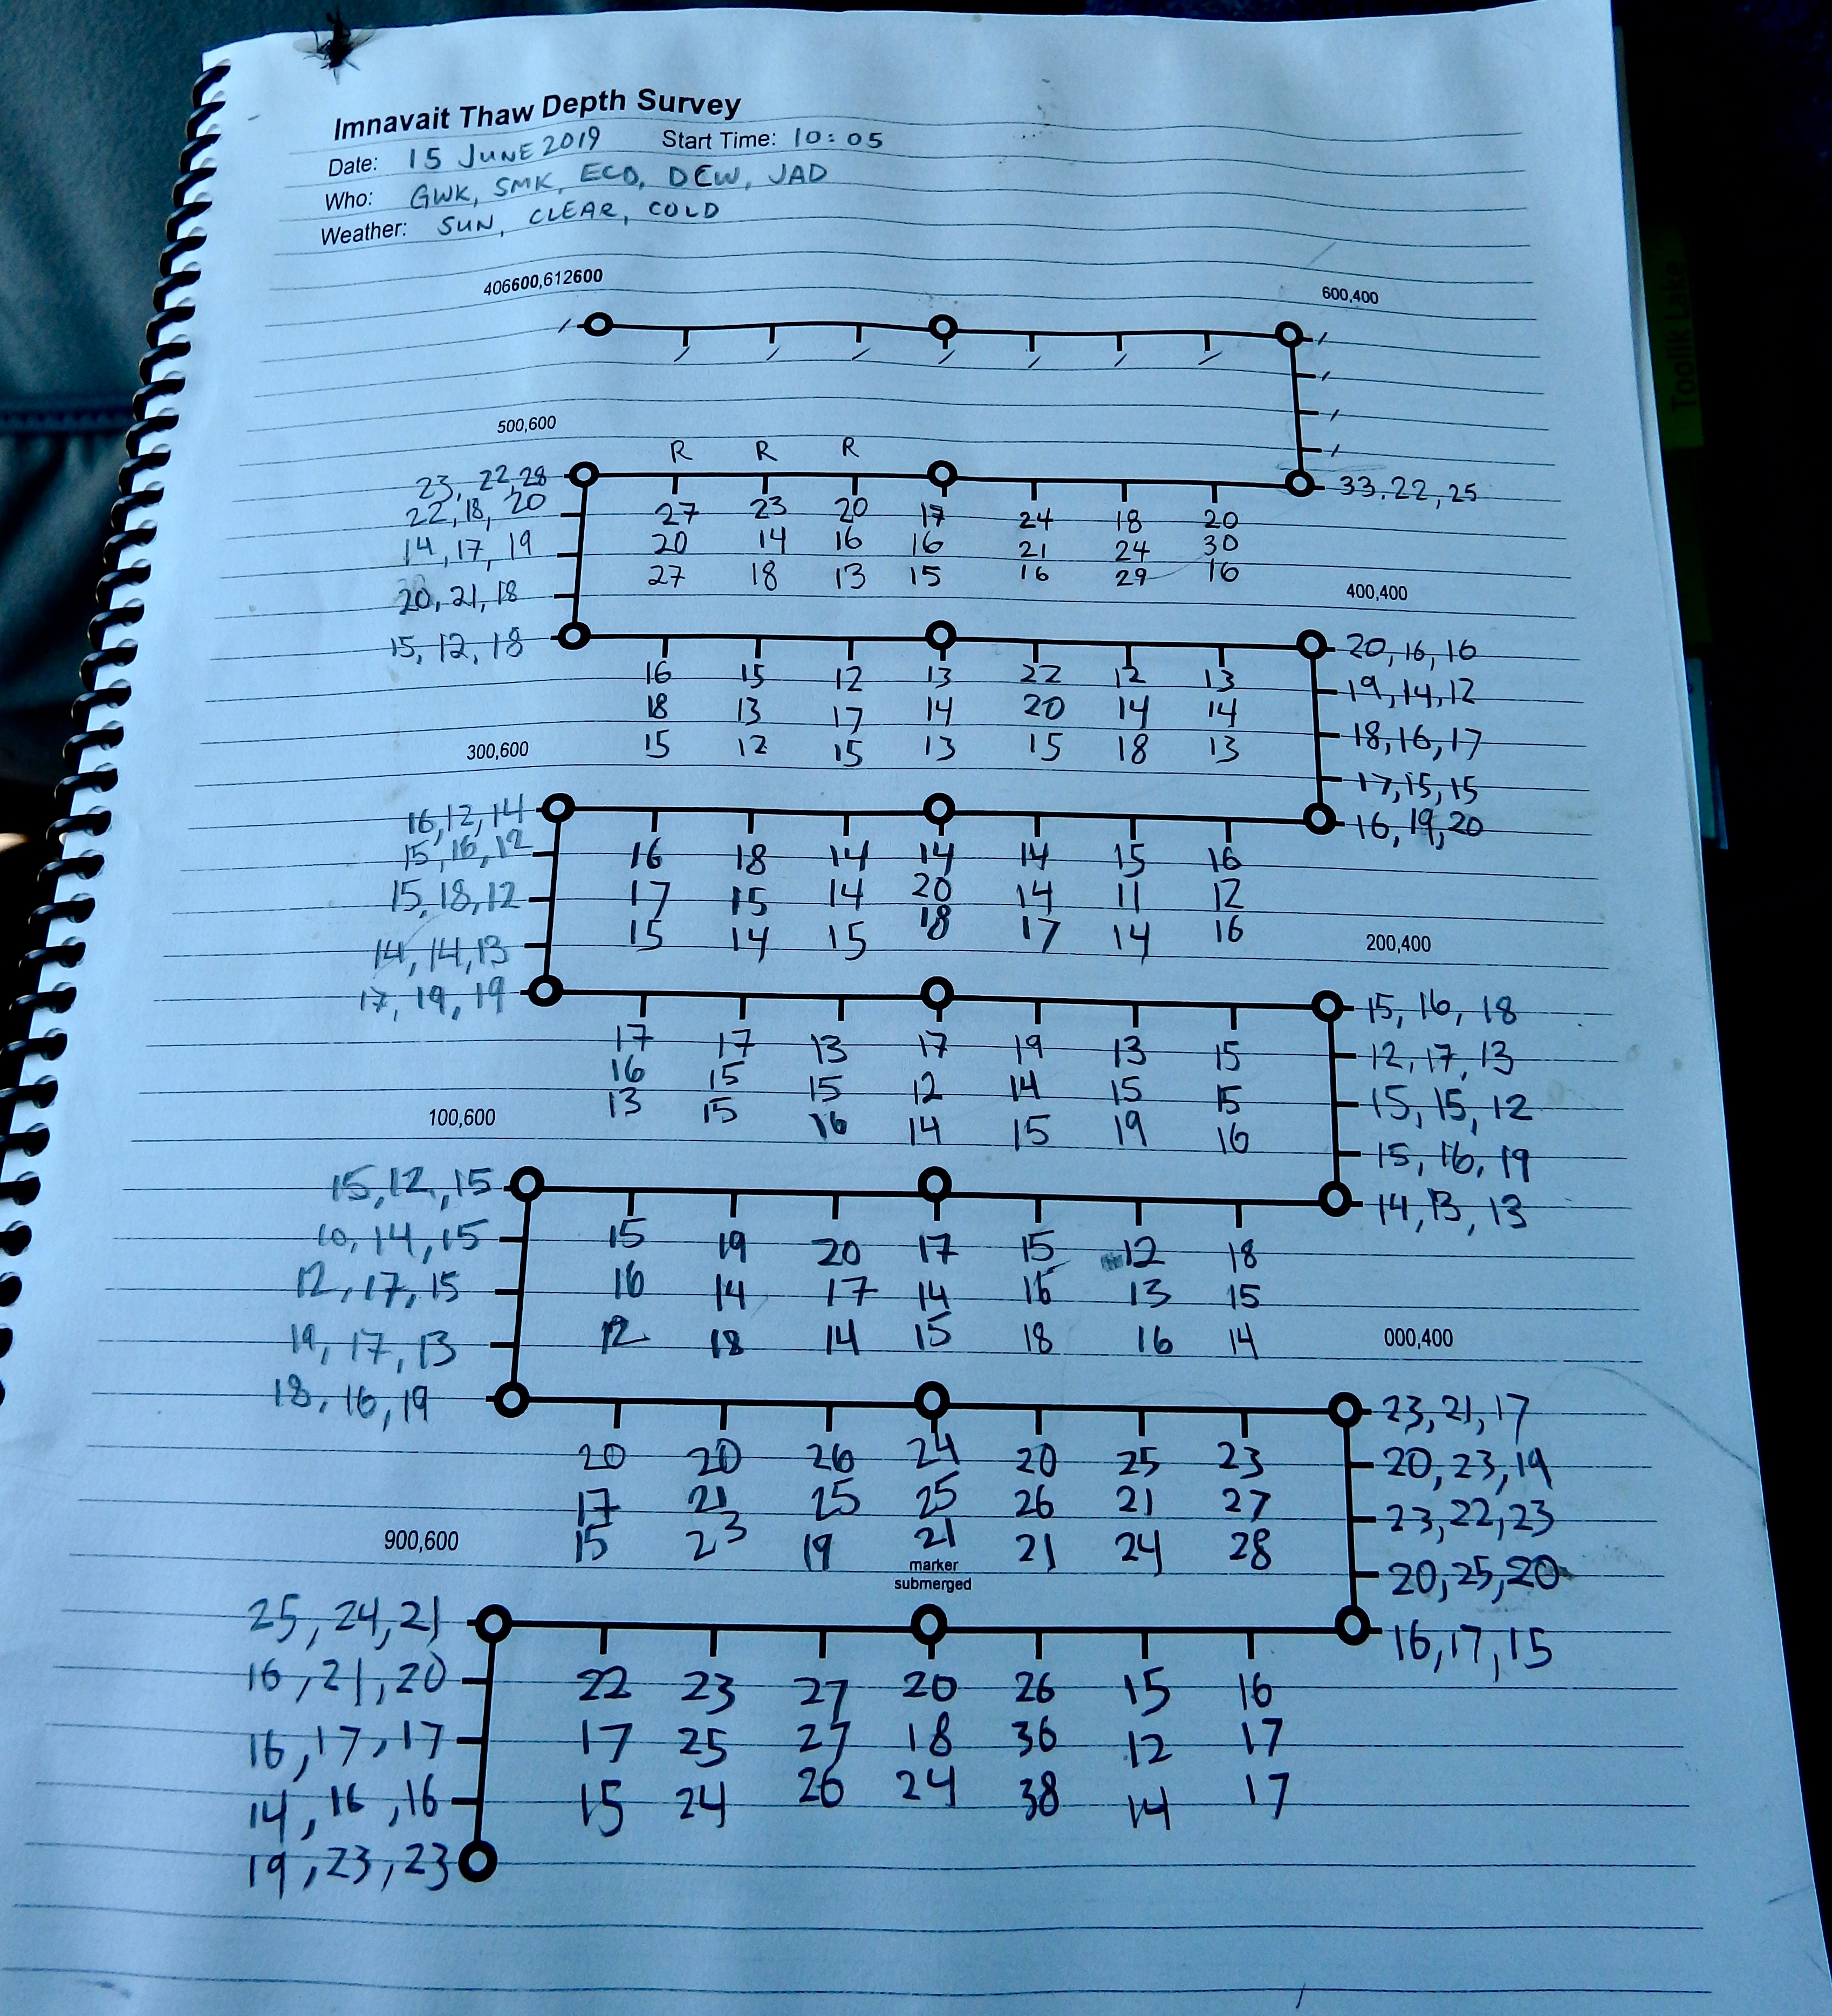 Imnavait Thaw Depth Survey
Date: 15 JUNE 2019 Start Time: 10:05
Who: GWK, SMK, ECO, DEW, JAD
Weather: SUN, CLEAR, COLD
406600,612600 600,400
500,600
R R R
23, 22, 28 33, 22, 25
22, 18, 20 27 23 20 17 24 18 20
14, 17, 19 20 14 16 16 21 24 30
27 18 13 15 16 29 16
20, 21, 18 400,400
15, 12, 18 20, 16, 16
16 15 12 13 22 12 13 19, 14, 12
18 13 17 14 20 14 14 18, 16, 17
300,600 15 12 15 13 15 18 13
17, 15, 15
16, 12, 14 16, 19, 20
15, 16, 12 16 18 14 14 14 15 16
15, 18, 12 17 15 14 20 14 11 12
15 14 15 18 17 14 16 200,400
14, 14, 13
17, 19, 19 15, 16, 18
17 17 13 17 19 13 15 12, 17, 13
16 15 15 12 14 15 15 15, 15, 12
100,600 13 15 16 14 15 19 16
15, 16, 19
15, 12, 15 14, 13, 13
10, 14, 15 15 19 20 17 15 12 18
12, 17, 15 16 14 17 14 16 13 15
19, 17, 13 12 18 14 15 18 16 14 000,400
18, 16, 19 23, 21, 17
20 20 26 24 20 25 23 20, 23, 19
17 21 25 25 26 21 27 23, 22, 23
900,600 15 23 19 21 21 24 28
marker 20, 25, 20
submerged
25, 24, 21 16, 17, 15
16, 21, 20 22 23 27 20 26 15 16
16, 17, 17 17 25 27 18 36 12 17
14, 16, 16 15 24 26 24 38 14 17
19, 23, 23
Toolik Lake